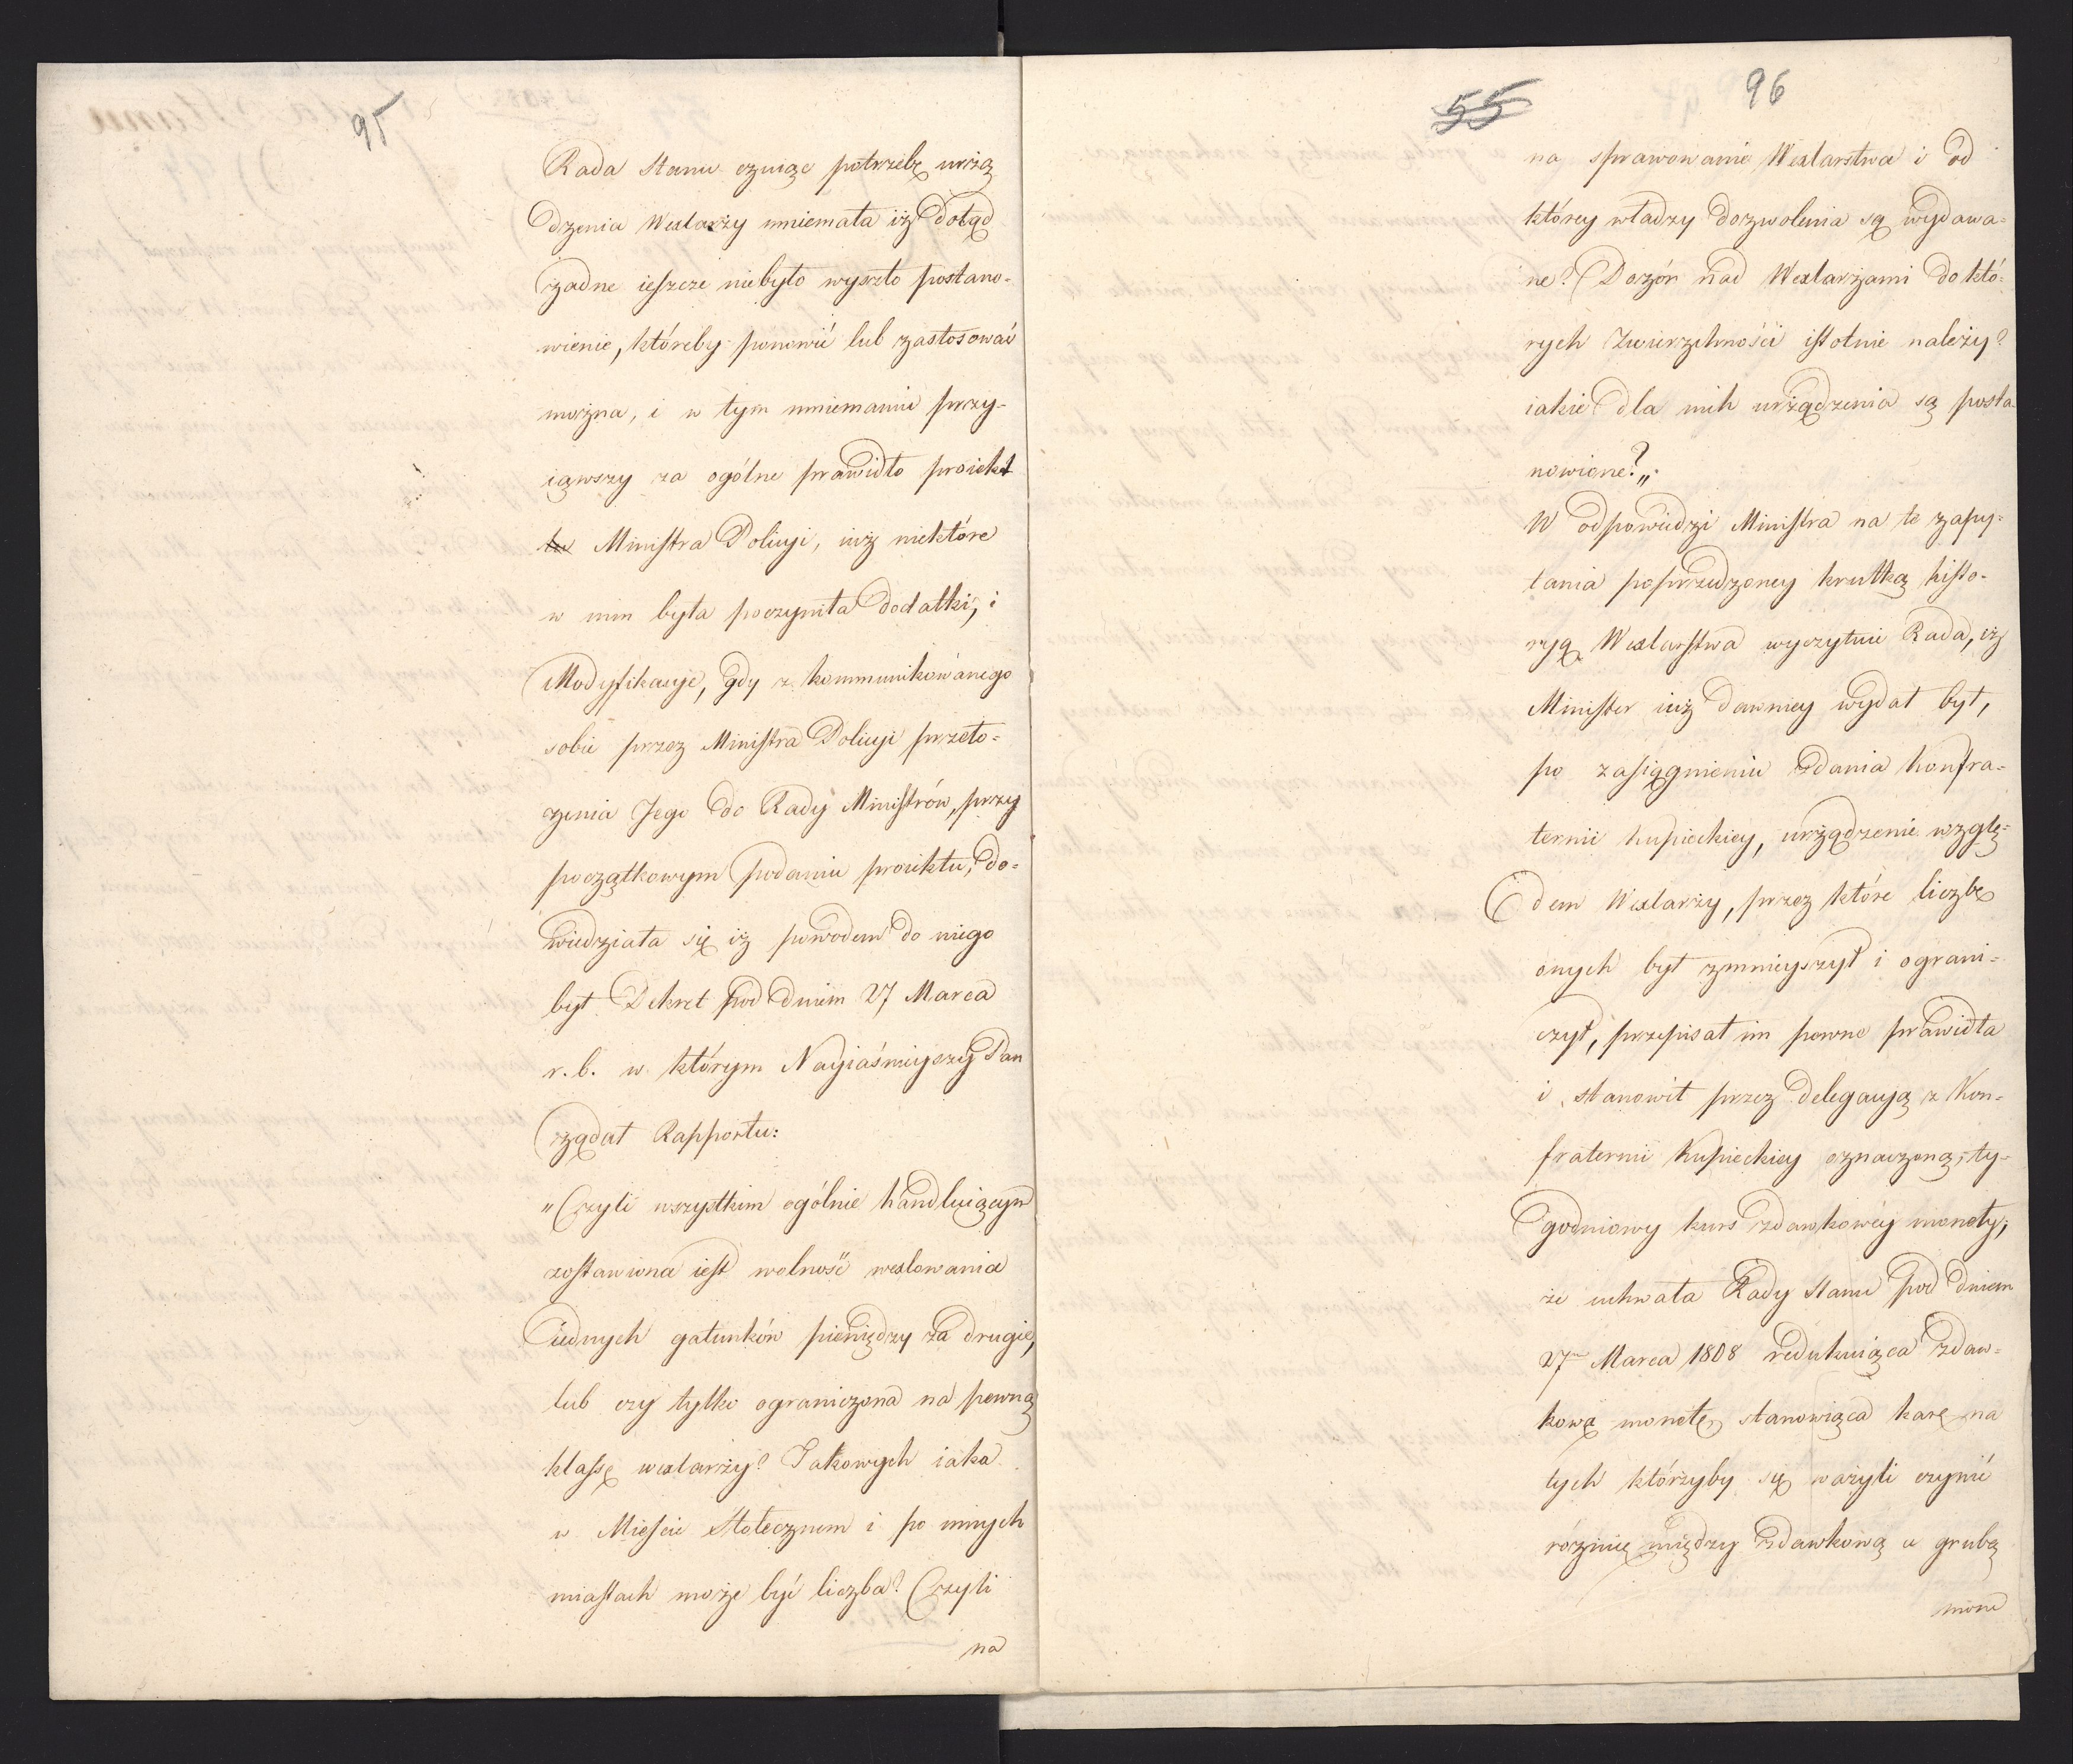 95
Rada Stanu czuiąc potrzebę urżą
dzenia Wexlarży mniemała iż dotąd
żadne ieszcze niebyło wyszło postano-
wienie, któreby ponowić lub zastosować
można, i w tym mniemaniu przy-
iąwszy za ogólne prawidło proiekt
Ministra Policyi, iuż niektóre
w nim była poczyniła dodatki, i
Modyfikacye, gdy z kommunikowanego
sobie przez Ministra Policyi przeło-
żenia Jego do Rady Ministrów, przy
początkowym podaniu proiektu, do-
wiedziała się iż powodem do niego
był Dekret pod dniem 27 Marca
r. b. w którym Nayiaśnieyszy Pan
żądał Rapportu:
"Czyli wszystkim ogólnie handluiącym
zostawiona iest wolność wexlowania
iednych gatunków pieniędzy za drugie,
lub czy tylko ograniczona na pewną
klassę wexlarży? Takowych iaka
w Mieście Stołecznem i po innych
miastach może być liczba? Czyli
na
55
96
na sprawowanie Wexlarstwa i od
którey władzy dozwolenia są wydawa-
ne? Dozór nad Wexlarżami do któ-
rych Zwierzchności istotnie należy?
iakie dla nich urżądzenia są posta-
nowione?„.
W odpowiedzi Ministra na te zapy-
tania poprzedzoney krutką histo-
ryą Wexlarstwa wyczytuie Rada, iż
Minister iuż dawniey wydał był,
po zasiągnieniu zdania Konfra-
ternii kupieckiey, urżądzenie wzglę-
dem Wexlarży, przez które liczbę
onych był zmnieyszył i ograni-
czył, przepisał im pewne prawidła
i stanowił przez delegacyą z Kon-
fraternii Kupieckiey oznaczoną, ty-
godniowy kurs zdawkowey monety,
że uchwała Rady Stanu pod dniem
27 Marca 1808 redukuiąca zdaw-
kową monetę, stanowiąca karę na
tych którzyby się ważyli czynić
różnicę między zdawkową a grubą
mone